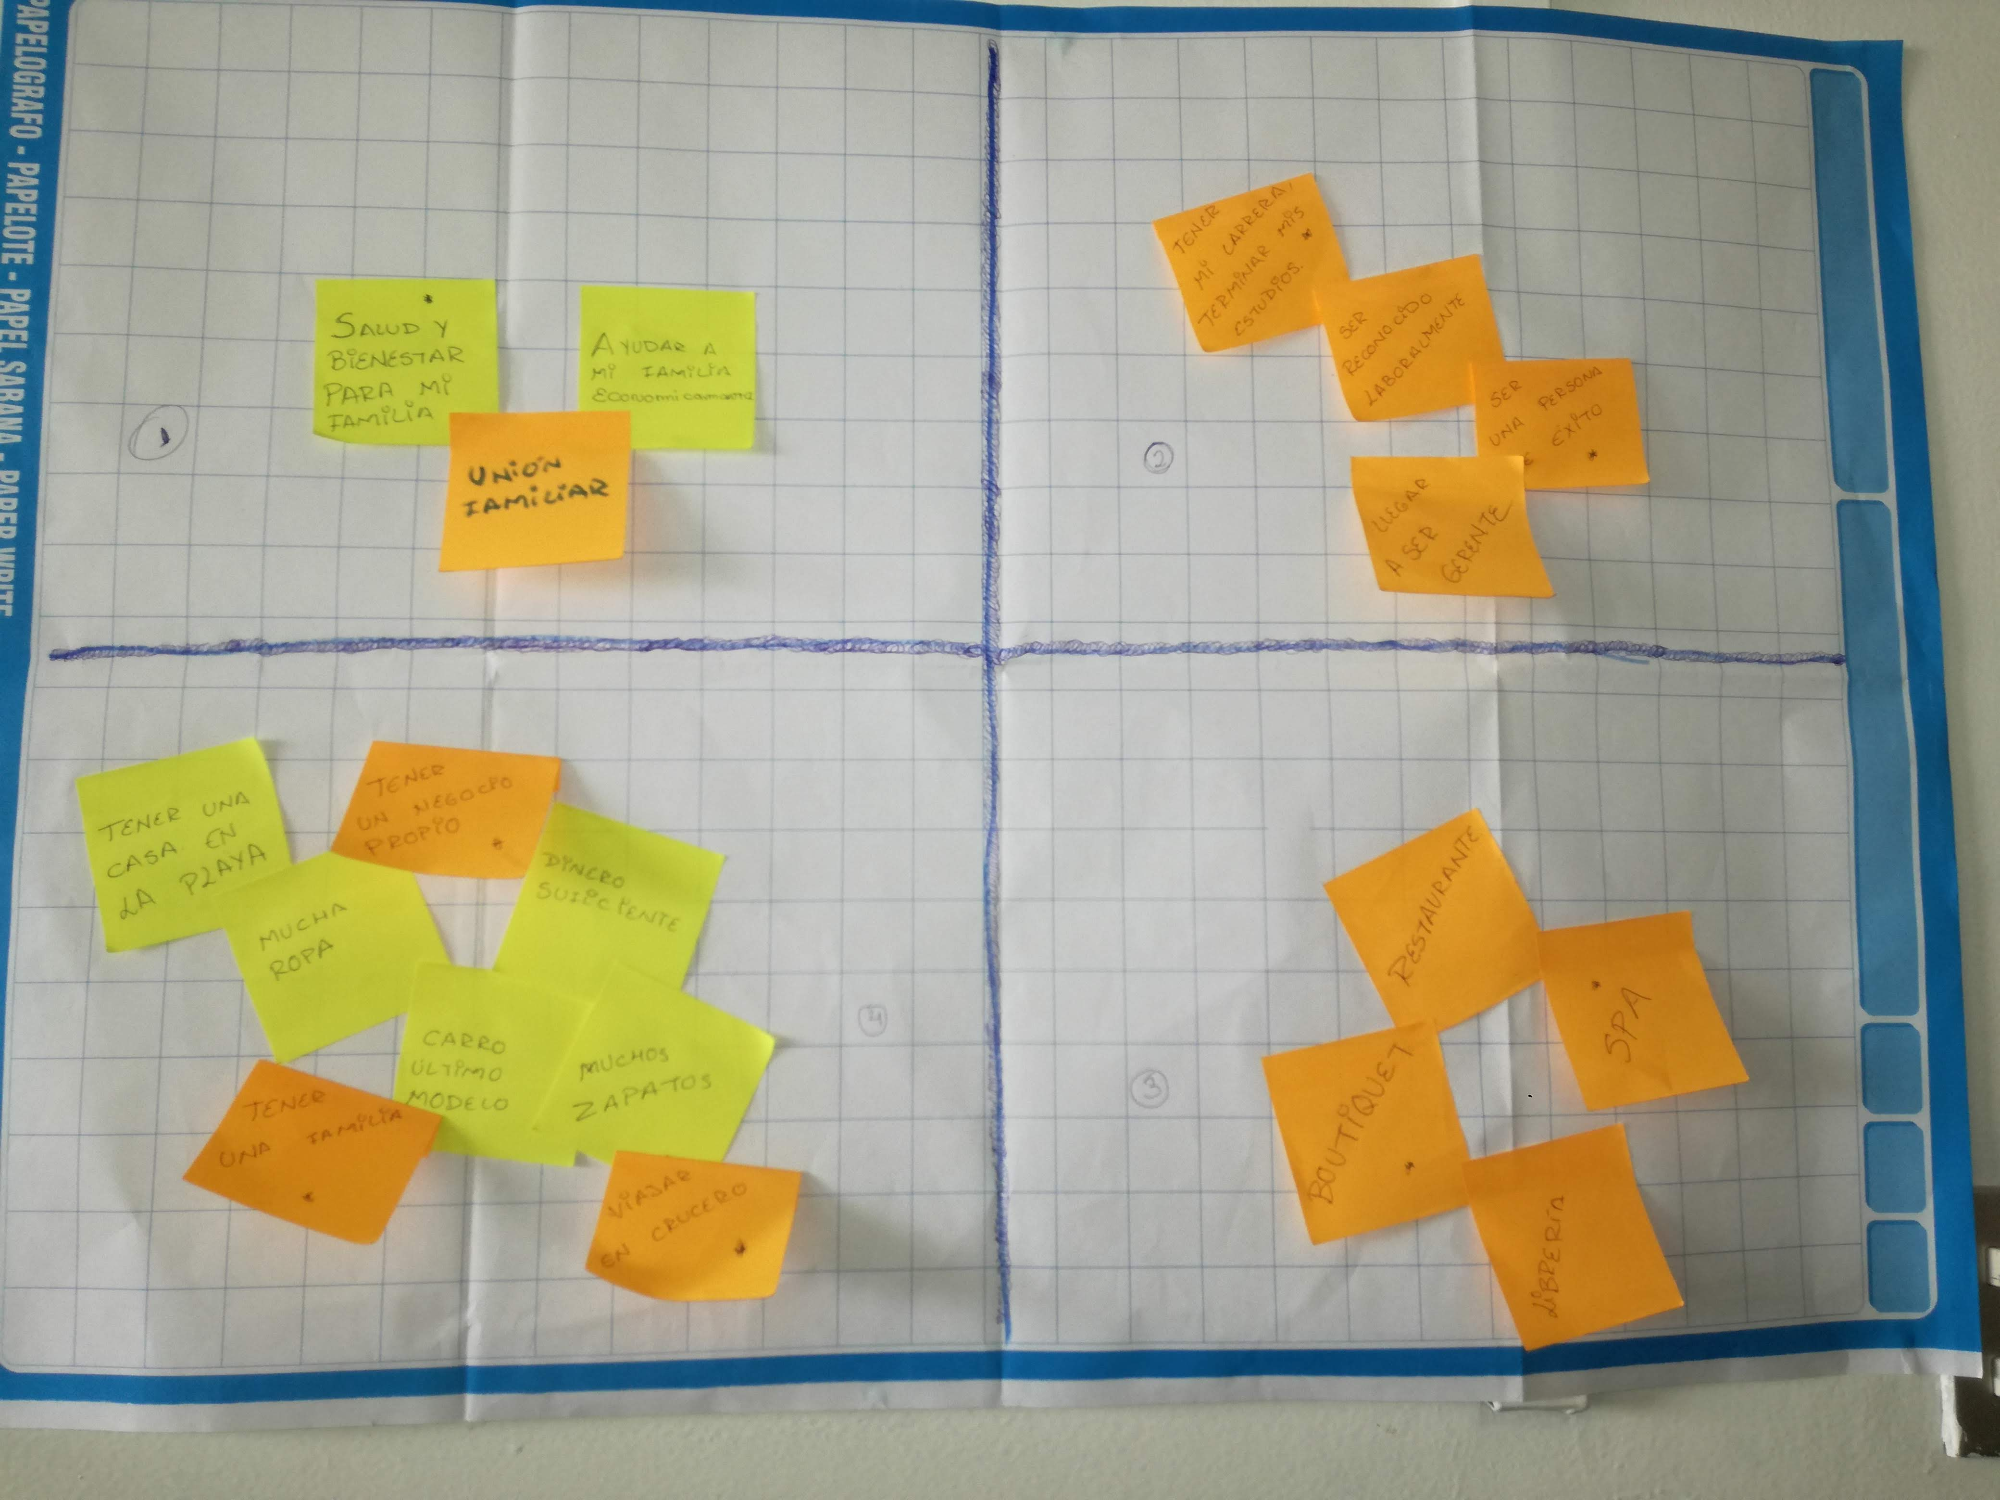 PAPELOGRAFO - PAPELOTE - PAPEL SABANA - PAPER WRITE
1
SALUD Y
BIENESTAR
PARA MI
FAMILIA
AYUDAR A
MI FAMILIA
Economicamente
UNIÓN
FAMILIAR
2
TENER
MI CARRERA,
TERMINAR MIS
ESTUDIOS.
SER
RECONOCIDO
LABORALMENTE
SER
UNA PERSONA
E ÉXITO
LLEGAR
A SER
GERENTE
TENER UNA
CASA EN
LA PLAYA
TENER
UN NEGOCIO
PROPIO
MUCHA
ROPA
DINERO
SUFICIENTE
CARRO
ÚLTIMO
MODELO
MUCHOS
ZAPATOS
TENER
UNA FAMILIA
VIAJAR
EN CRUCERO
4
3
RESTAURANTE
SPA
BOUTIQUET
LIBRERÍA